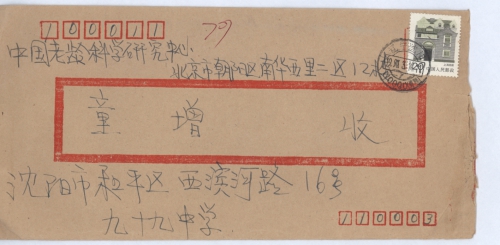 100011
79
中国老龄科学研究中心
北京市朝阳区南华西里二区12
童增 收
沈阳市和平区西滨河路16号
九十九中学
110003